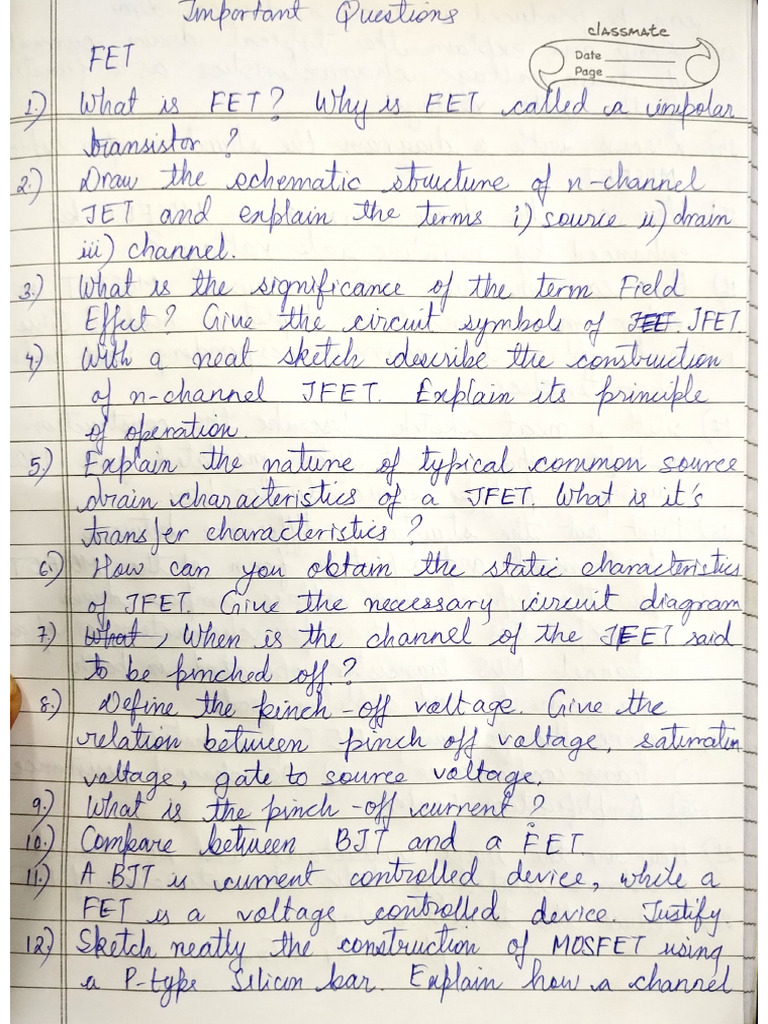 Important Questions
classmate
Date
Page
FET
1.) What is FET? Why is FET called a unipolar
transistor?
2.) Draw the schematic structure of n-channel
JET and explain the terms i) source ii) drain
iii) channel.
3.) What is the significance of the term Field
Effect? Give the circuit symbols of JFET
4.) With a neat sketch describe the construction
of n-channel JFET. Explain its principle
of operation.
5.) Explain the nature of typical common source
drain characteristics of a JFET. What is it's
transfer characteristics?
6.) How can you obtain the static characteristics
of JFET. Give the necessary circuit diagram
7.) What, When is the channel of the JFET said
to be pinched off?
8.) Define the pinch-off voltage. Give the
relation between pinch off voltage, saturation
voltage, gate to source voltage.
9.) What is the pinch-off current?
10.) Compare between BJT and a FET
11.) A BJT is current controlled device, while a
FET is a voltage controlled device. Justify.
12.) Sketch neatly the construction of MOSFET using
a P-type Silicon bar. Explain how a channel